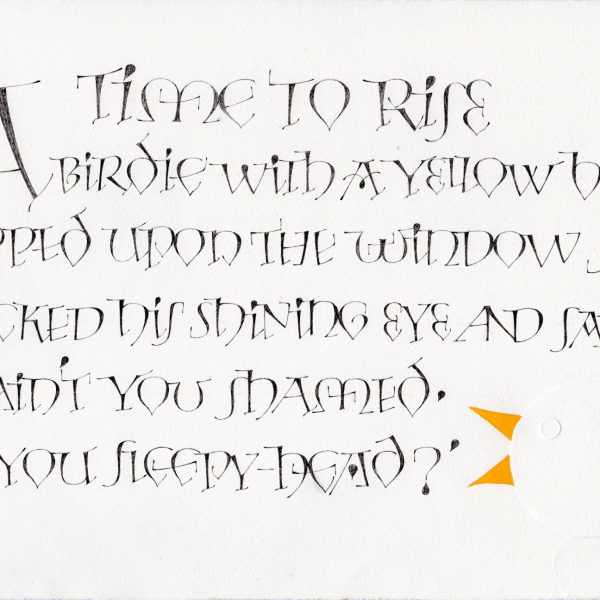 TIME TO RISE
A BIRDIE WITH A YELLOW B
PPED UPON THE WINDOW S
CKED HIS SHINING EYE AND SA
AIN'T YOU SHAMED,
YOU SLEEPY-HEAD?'